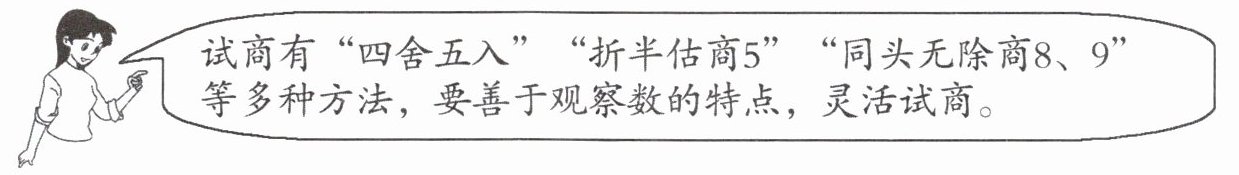 试商有“四舍五入”“折半估商5”“同头无除商8、9”
等多种方法，要善于观察数的特点，灵活试商。